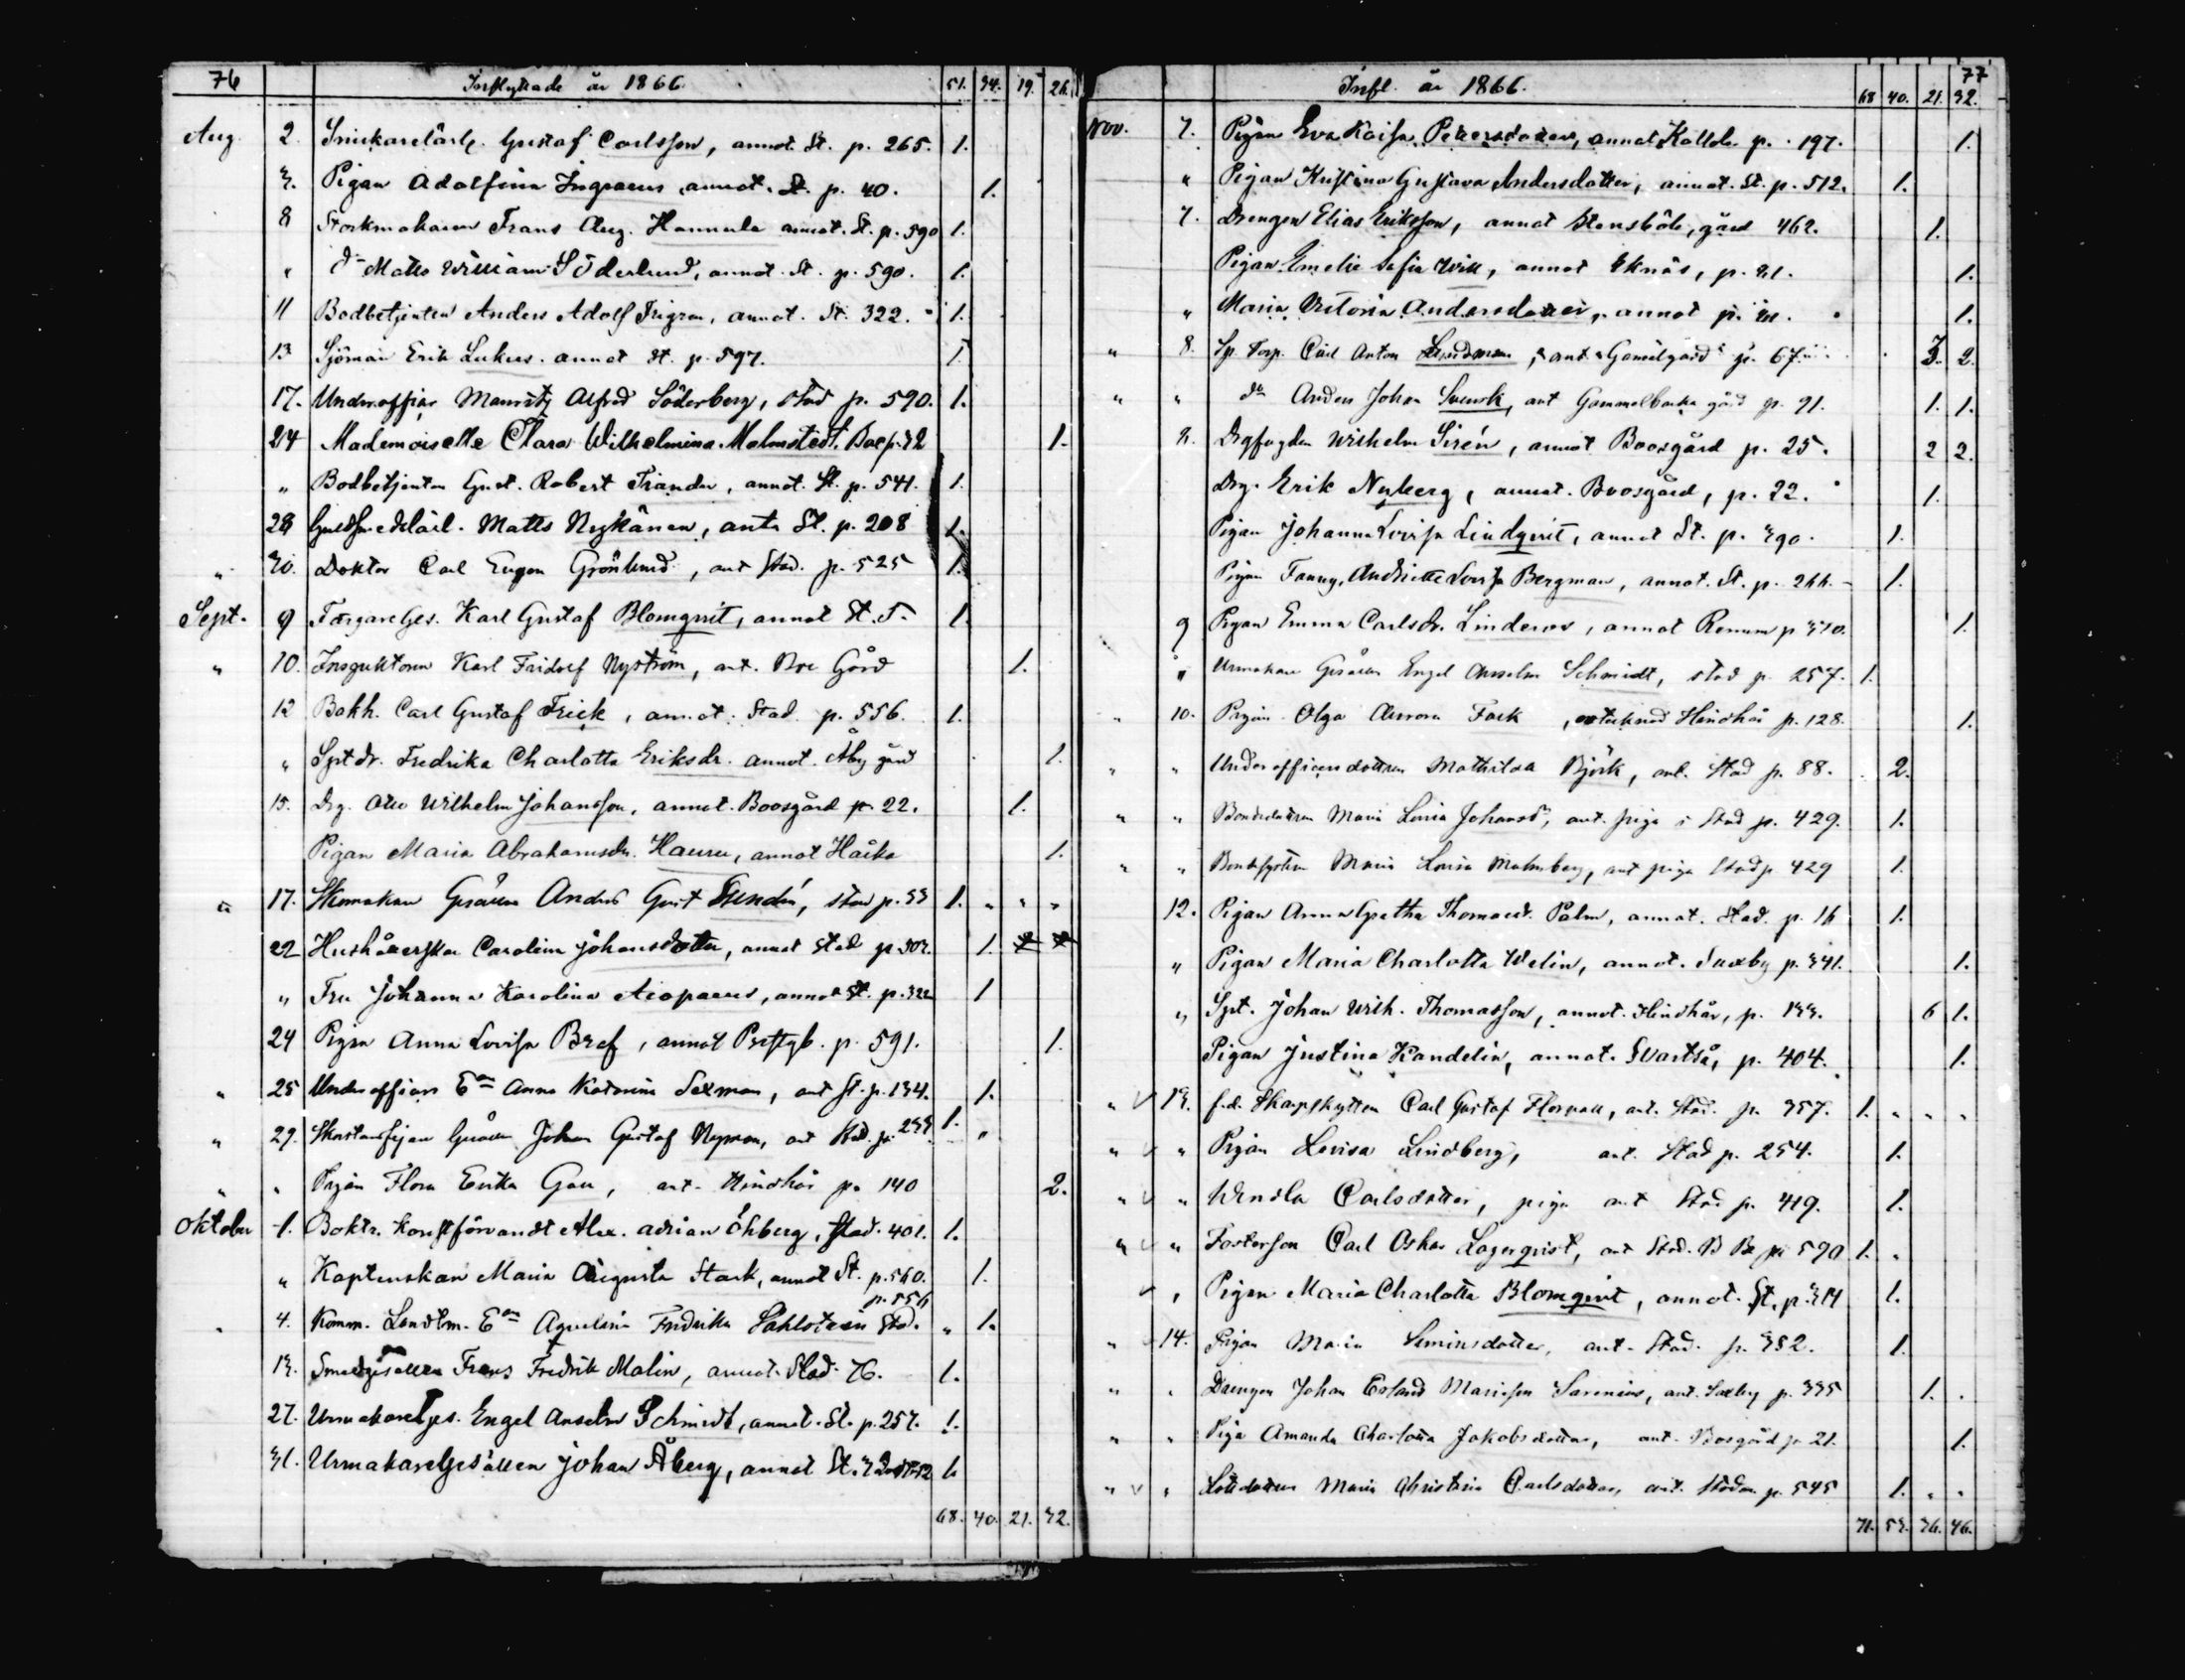 76 Inflyttade år 1866. 51. 34. 19. 26.
Aug. 2. Snickarelärl. Gustaf Carlsson, annot. St. p. 265. 1.
3. Pigan Adolfina Ingraeus annot. St. p. 40. 1.
8 Frans Aug. Hannula annot. St. p. 590 1.
" do Matts William Söderlund, annot. St. p. 590. 1.
11 Bodbetjenten Anders Adolf annot. St. 322. 1.
13 Sjöman Erik Lukus. annot St. p. 597. 1.
17. Underofficer Mauritz Alfred Söderberg, stad p. 590. 1.
24 Mademoiselle Clara Wilhelmina Malmstedt. Boe p. 32 1.
" Bodbetjenten Gust. Robert annot. St. p. 541. 1.
28 Guldsmedslärl. Matts Nykänen, ant. St. p. 208 1.
" 30. Doktor Carl Eugen Grönlund, ant Stad. p. 525 1.
Sept. 9 Färgareges. Karl Gustaf Blomqvist, annot St. 5. 1.
" 10. Inspektoren Karl Fridolf Nyström, ant. Boe Gård 1.
12 Bokh. Carl Gustaf Frick, annot. Stad. p. 556. 1.
" Sptdr. Fredrika Charlotta Eriksdr. annot. Åby gård 1.
15. Drg. Otto Wilhelm Johansson, annot. Boosgård p. 22. 1.
Pigan Maria Abrahamsdr. Hauru, annot Haiko 1.
" 17. Skomakare Gesällen Anders Gust Sundén, stad p. 33 1. " " "
22 Hushållerskan Carolina Johansdotter, annot Stad p. 303. 1.
" Fru Johanna Karolina Aeopaeus, annot St. p. 322 1
24 Pigan Anna Lovisa Bref, annot Prestgb. p. 591. 1.
" 25 Underofficers Ean Anna Katarina Sexman, ant St. p. 134. 1.
" 29. Gesällen Johan Gustaf Nyman, ant Stad. p. 233 1. "
" " Pigan Flora Erika Gau, ant. Hindhår p. 140 2.
Oktober 1. Boktr. konstförvandt Alex. Adrian Öhberg, Stad. 401. 1.
" Kaptenskan Maria Augusta Stark, annot St. p. 560. 1.
p. 556
" 4. Komm. Landtm. Ean Fredrika Sahlsteen Stad. " 1.
13. Smedgesällen Frans Fredrik Malin, annot. Stad. 76. 1.
27. Urmakareges. Engel Anselm Schmidt, annot. St. p. 257. 1.
31. Urmakaregesällen Johan Åberg, annot St. 1.
68. 40. 21. 32.
Infl. år 1866. 77
68 40. 21. 32.
Nov. 7. Pigan Eva Kaisa Petersdotter, annot. p. 197. 1.
" Pigan Kristina Gustava Andersdotter, annot. St. p. 512. 1.
7. Drengen Elias Eriksson, annot Stensböle gård 462. 1.
Pigan Emelie Sofia Wik, annot Eknäs, p. 21. 1.
" Maria Victoria Andersdotter, annot p. 1.
" 8. Sp. Torp. Carl Anton Lindman, ant. Gamelgård p. 67. 3. 2.
" " do Anders Johan Svensk, ant Gammelbacka gård p. 91. 1. 1.
8. Drgfogden Wilhelm Sirén, annot Boosgård p. 25. 2 2.
Drg. Erik Nyberg, annot. Boosgård, p. 22. 1.
Pigan Johanna Lovisa Lindqvist, annot St. p. 390. 1.
Pigan Fanny Andriette Lovisa Bergman, annot. St. p. 266. 1.
9 Pigan Emma Carlsdr. Linderos, annot Renum p. 370. 1.
" Urmakare Gesällen Engel Anselm Schmidt, stad p. 257. 1.
" 10. Pigan Olga Aurora Fack, antecknad Hindhår p. 128. 1.
" " Underofficersdottren Mathilda Björk, ant. Stad p. 88. 2.
" " Bondedottren Maria Lovisa Johansdr, ant. piga i Stad p. 429. 1.
" " Maria Lovisa Malmberg, ant piga Stad p. 429 1.
12. Pigan Anna Gretha Thomasdr. Palm, annot. Stad. p. 16 1.
" Pigan Maria Charlotta Welin, annot. Saxby p. 341. 1.
" Spt. Johan Wilh. Thomasson, annot. Hindhår, p. 133. 6 1.
Pigan Justina Kandelin, annot. Svartså, p. 404. 1.
" v 13. f.d. Skarpskytten Carl Gustaf Florvall, ant. Stad. p. 357. 1. " " "
" v " Pigan Lovisa Lindberg, ant. Stad p. 254. 1.
" v " Wendla Carlsdotter, piga ant Stad p. 419. 1.
" v " Fosterson Carl Oskar Lagerqvist, ant Stad. B Bx p. 590 1. "
v " Pigan Maria Charlotta Blomqvist, annot. St. p. 314 1.
" 14. Pigan Maria Simonsdotter, ant. Stad. p. 382. 1.
" " Drengen Johan Erland Mariesson Sarenius, ant. Saxby p. 335 1. "
" " Piga Amanda Charlotta Jakobsdotter, ant. Bosgård p. 21. 1.
" v " Maria Christina Carlsdotter, ant. Staden p. 545 1. " "
71. 53. 36. 46.